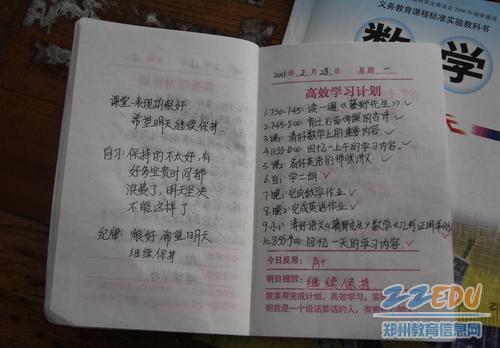 课堂:表现的很好,
希望明天继续保持
自习:保持的不太好,有
好多宝贵时间都
浪费了,明天坚决
不能这样了
纪律:很好,希望明天
继续保持
2011年2月28日 星期一
高效学习计划
1.730-745:读一遍《藤野先生》✓
2.745-800:背过后面四段的古诗 ✓
3.课:清好数学上的重要内容.✓
4.11:55-12:00:回忆一上午的学习内容.✓
5.课:
6.自:学二朗 ✓
7.晚:完成数学作业 ✓
8.晚2:完成英语作业 ✓
9.小:清好语文《藤野先生》数学
10.8:55-9:00:回忆一天的学习内容 ✓
今日反思: A+
明日提醒: 继续保持
我要用完成计划,高效学习,实
明我是一个说话算话的人,有
义务教育课程标准实验教科书
数学
ZZEDU
郑州教育信息网